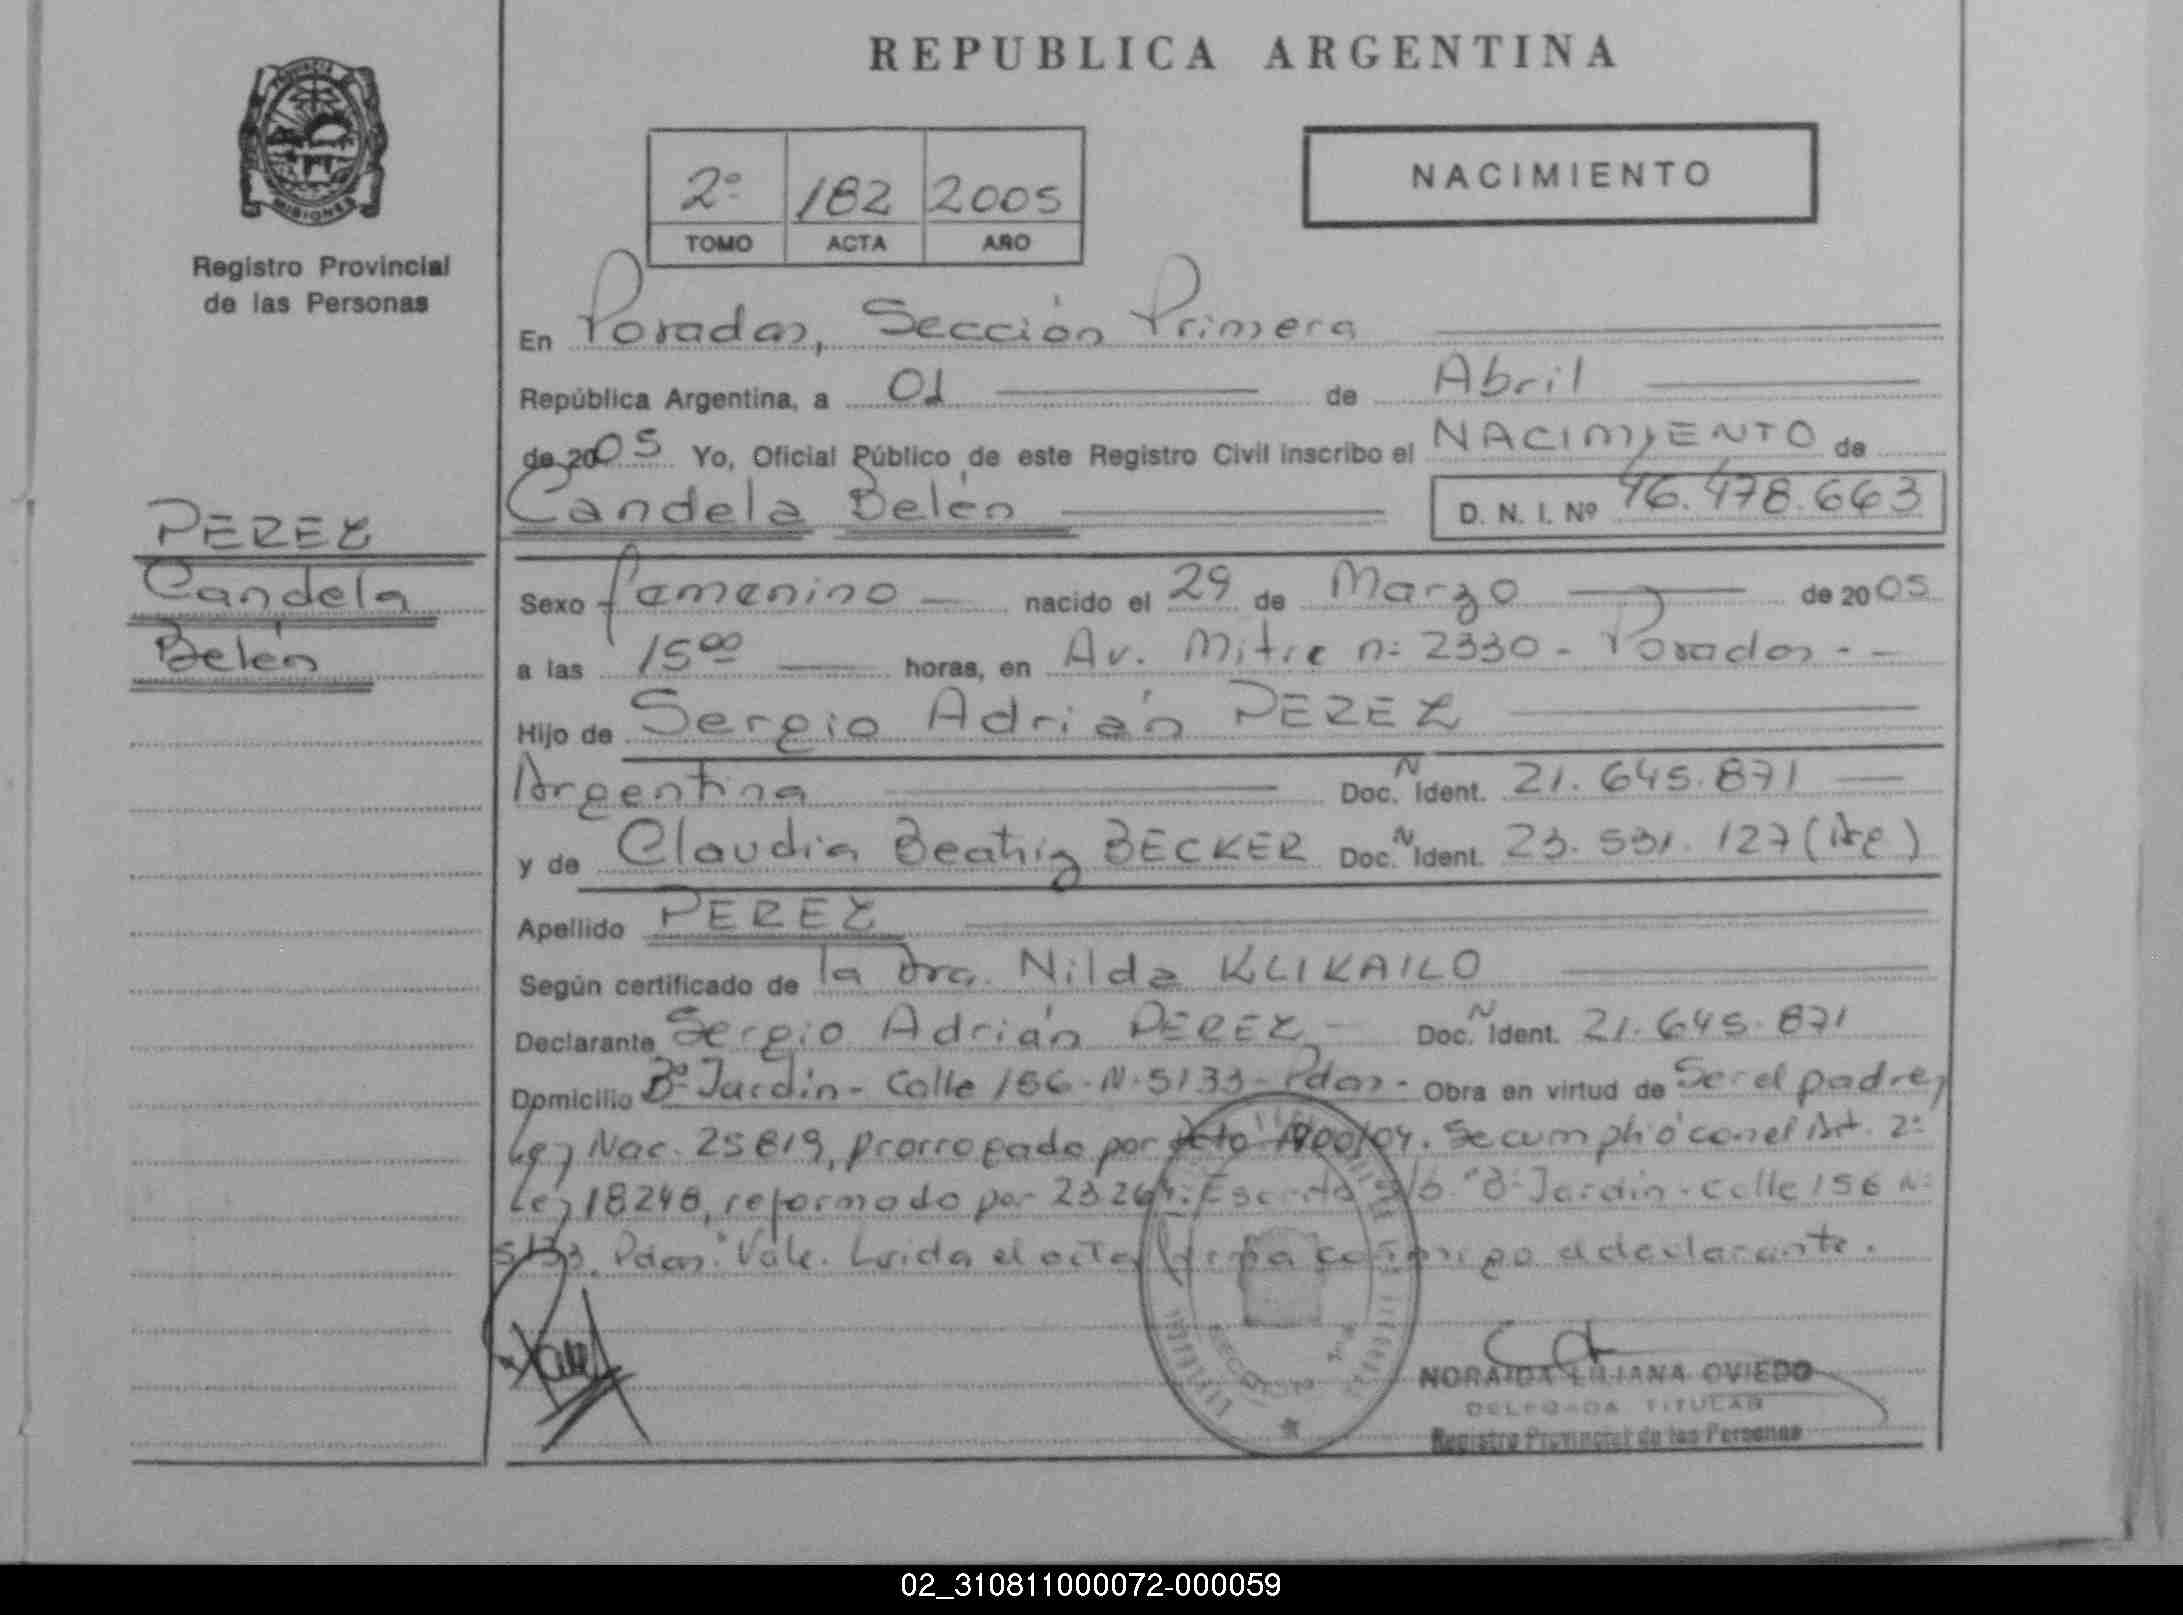 REPUBLICA ARGENTINA
PROVINCIA
MISIONES
Registro Provincial
de las Personas
2º 182 2005
TOMO ACTA AÑO
NACIMIENTO
En Posadas, Sección Primera
República Argentina, a 01 de Abril
de 2005 Yo, Oficial Público de este Registro Civil inscribo el NACIMIENTO de
Candela Belén D. N. I. Nº 46.478.663
PEREZ
Candela
Belén
Sexo femenino nacido el 29 de Marzo de 2005
a las 15ºº horas, en Av. Mitre nº 2330 - Posadas - -
Hijo de Sergio Adrián PEREZ
Argentina Doc. N Ident. 21.645.871
y de Claudia Beatriz BECKER Doc. N Ident. 23.531.127 (Arg)
Apellido PEREZ
Según certificado de la Dra. Nilda KLIKAILO
Declarante Sergio Adrián PEREZ Doc. N Ident. 21.645.871
Domicilio Bº Jardín - Calle 156 - N. 5133 - Pdas - Obra en virtud de Ser el padre,
Ley Nac. 25819, prorrogado por Dcto 1900/04. Se cumplió con el Art. 2º
Ley 18248, reformado por 23.264. Escrito s/b. "Bº Jardín - Calle 156 Nº
5133. Pdas." Vale. Leida el acta firma conmigo el declarante.
NORAIDA LILIANA OVIEDO
DELEGADA TITULAR
Registro Provincial de las Personas
02_310811000072-000059